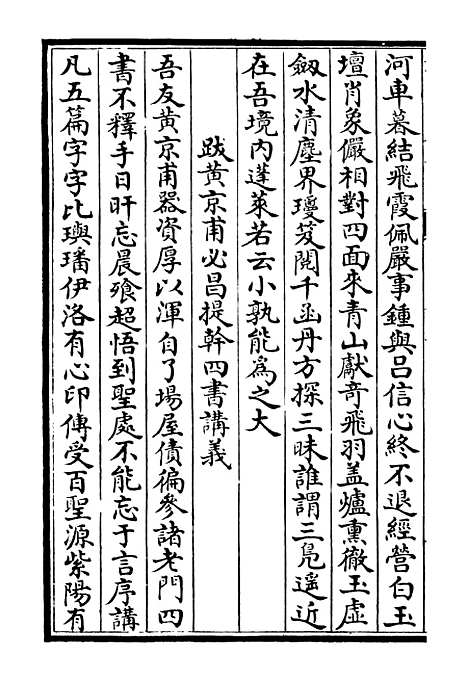 河車暮結飛霞佩嚴事鍾與呂信心終不退經營白玉
壇肖象儼相對四面來青山獻奇飛羽盖爐熏徹玉虛
劔水清塵界瓊笈閱千函丹方探三昧誰謂三島遥近
在吾境內蓬萊若云小孰能為之大
跋黃京甫必昌提幹四書講義
吾友黃京甫器資厚以渾自了場屋債徧參諸老門四
書不釋手日旰忘晨飱超悟到聖處不能忘于言序講
凡五篇字字比璵璠伊洛有心印傳受百聖源紫陽有